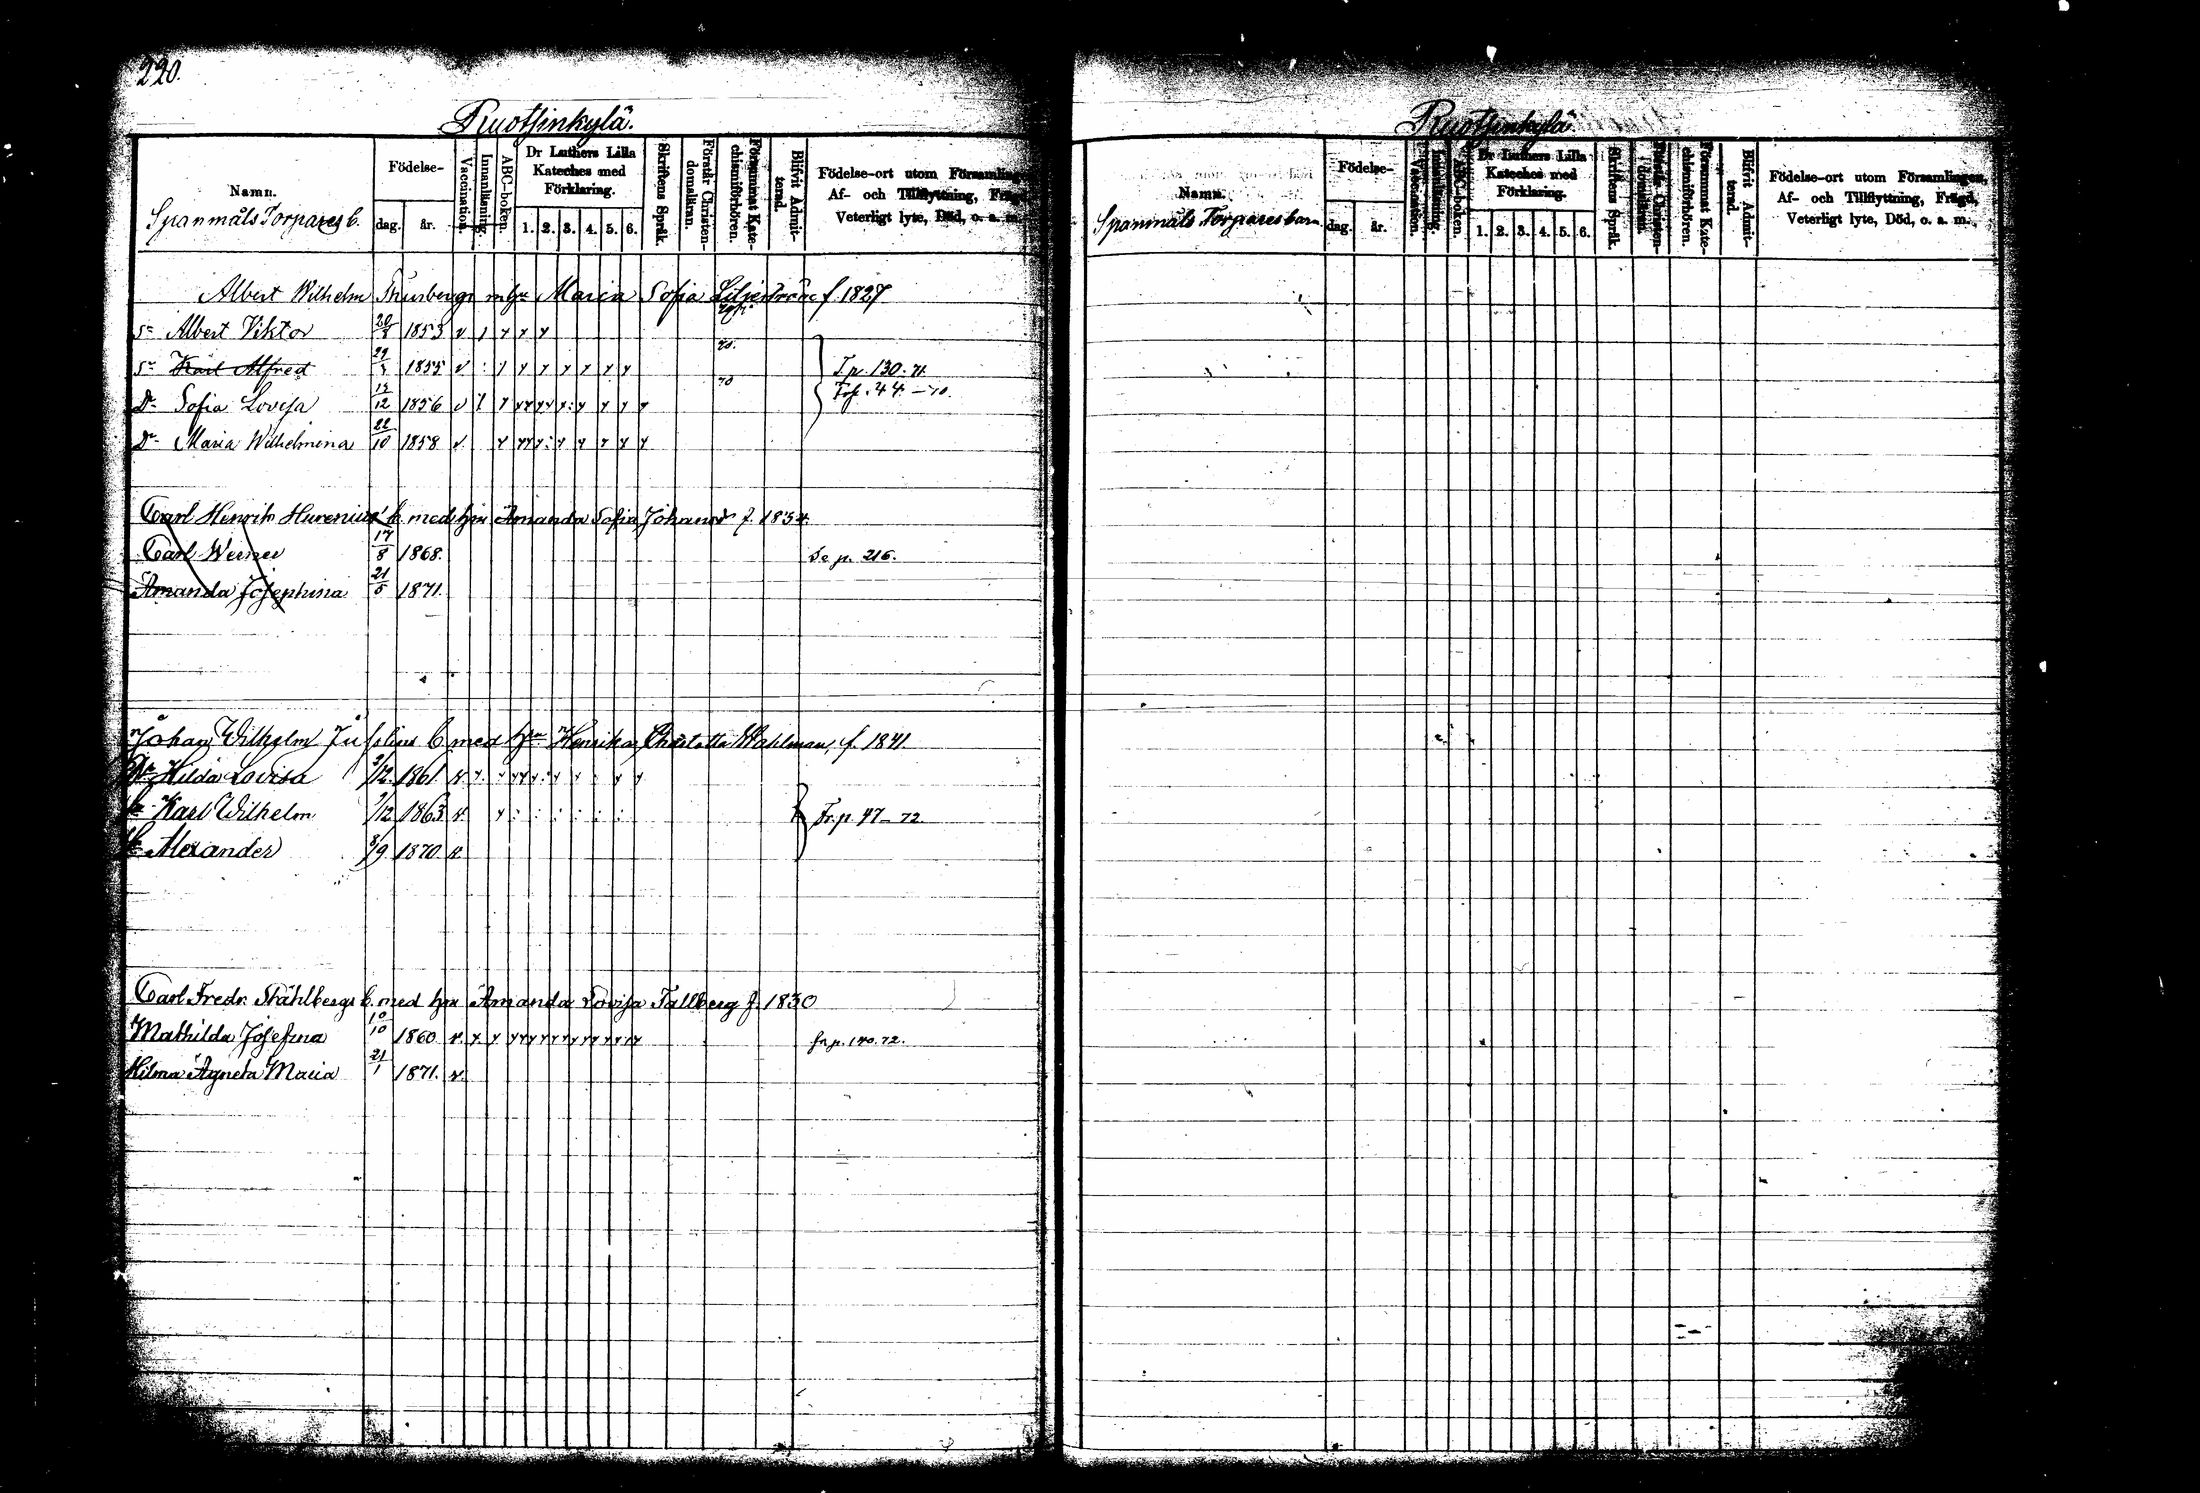 220.
Ruotsinkylä.
Namn.
Spanmåls Torpares b.
Födelse-
dag.
år.
Vaccination.
Innanläsning.
ABC-boken.
Dr Luthers Lilla Kateches med Förklaring.
1. 2. 3. 4. 5. 6.
Skriftens Språk.
Förstår Christendomsläran.
Försummat Katechismiförhören.
Blifvit Admitterad.
Födelse-ort utom Församlingen,
Af- och Tillflyttning, Frägd,
Veterligt lyte, Död, o. a. m.
Albert Wilhelm Thusbergs m hu Maria Sofia Liljeström f. 1827
Sn Albert Viktor 1853
Sn Karl Alfred 1855 T p. 130. 71.
Dr Sofia Lovisa 12 1856 Frp. 44 - 70.
Dr Maria Wilhelmina 22/10 1858
Carl Henrik Hurenius' b. med hu Amanda Sofia Johansd f. 1834.
Carl Werner 17/8 1868. Se p. 216.
Amanda Josephina 21/5 1871.
Johan Wilhelm b med hu Henrika Charlotta Wahlman, f. 1841
Dr Hilda Lovisa 1861
Karl Wilhelm 1863 Fr. p 47 - 72
Alexander 8/9 1870
Carl Fredr. Ståhlbergs b. med hu Amanda Lovisa Tallberg f. 1830
Mathilda Josefina 10/10 1860 fr p. 140. 72.
Hilma Agneta Maria 21/1 1871.
Ruotsinkylä
Namn.
Spanmåls Torpares barn
Födelse-
dag.
år.
Vaccination.
Innanläsning.
ABC-boken.
Dr Luthers Lilla Kateches med Förklaring.
1. 2. 3. 4. 5. 6.
Skriftens Språk.
Förstår Christendomsläran.
Försummat Katechismiförhören.
Blifvit Admitterad.
Födelse-ort utom Församlingen,
Af- och Tillflyttning, Frägd,
Veterligt lyte, Död, o. a. m.